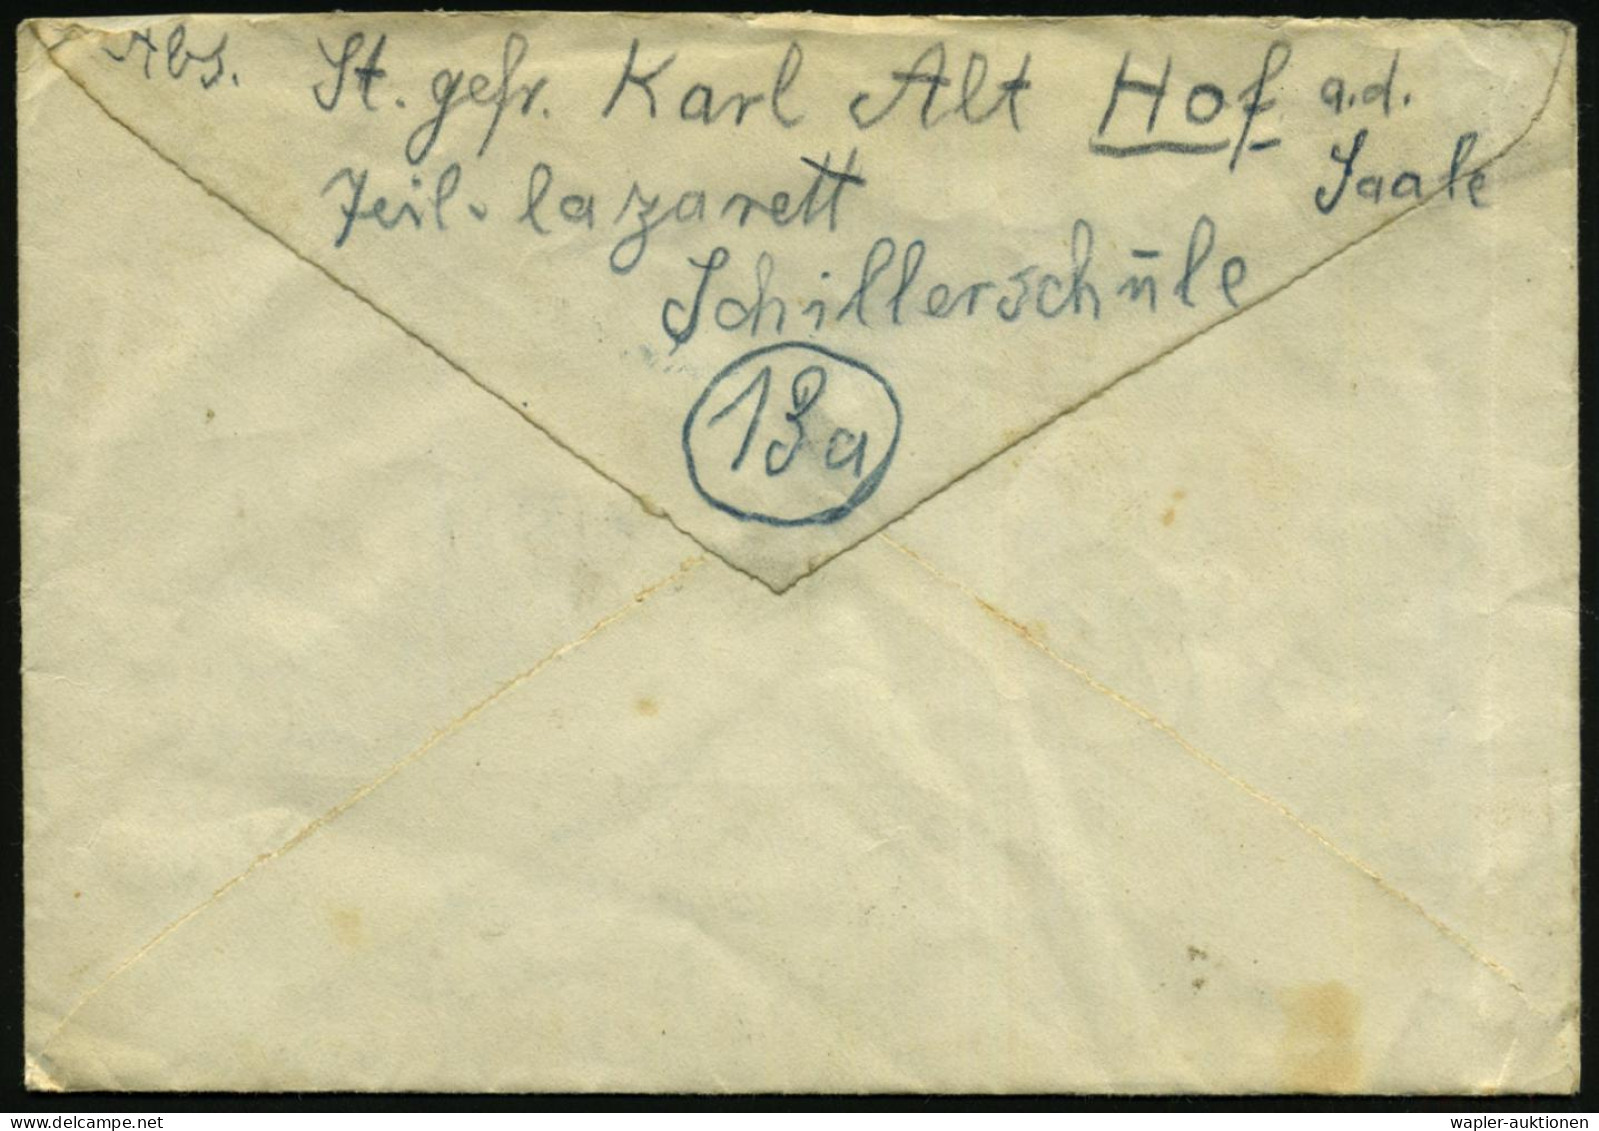 Abs. St. gefr. Karl Alt Hof a.d.
Saale
Teil-lazarett
Schillerschule
13a
wapler-auktionen